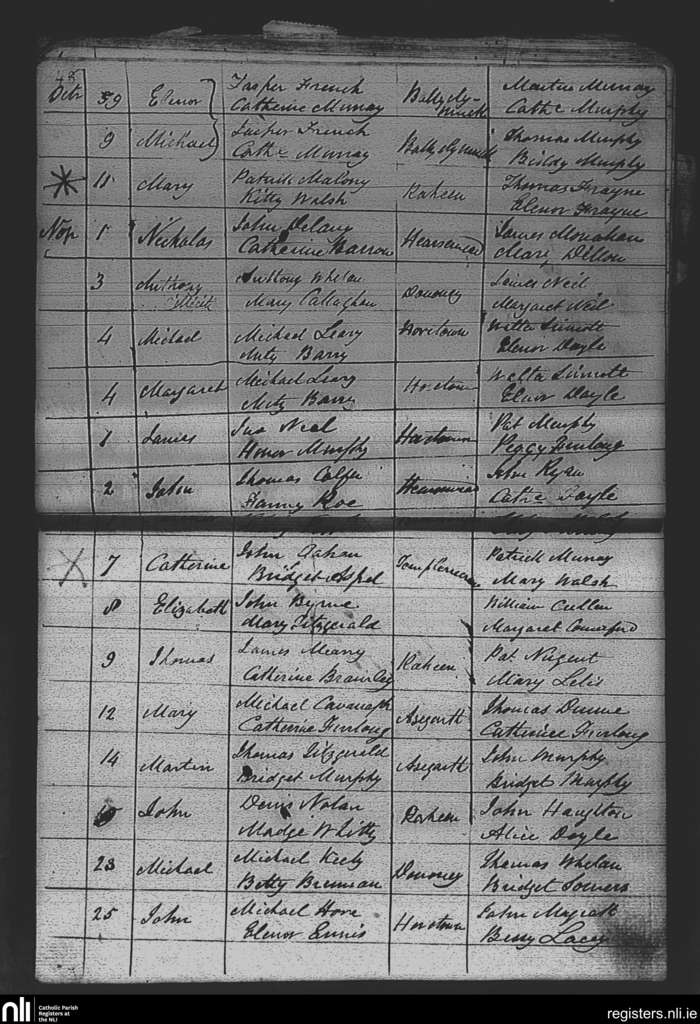 48
Octr 39 Elenor Jasper French Ballyly-
Catherine Murray mick
Martin Murray
Cathe Murphy
9 Michael Jasper French Ballyclymick Thomas Murphy
Cathe Murray Biddy Murphy
11 Mary Patrick Malony Raheen Thomas Frayne
Kitty Walsh Elenor Frayne
Nov 1 Nicholas John Delany James Monahan
Catherine Mary Dillon
3 Anthony Anthony Whelan Donowney James Neil
Mary Callaghan Margaret Neil
4 Michael Michael Leary Horetown Walter Sinnott
Anty Barry Elenor Doyle
4 Margaret Michael Leary Horetown Walter Sinnott
Anty Barry Elenor Doyle
1 James Jas Neal Pat Murphy
Honor Murphy Peggy Furlong
2 John Thomas Colfer John Ryan
Fanny Roe Cathe Doyle
7 Catherine John Gahan Patrick Murray
Bridget Aspel Mary Walsh
8 Elizabeth John Byrne William Cullen
Mary Fitzgerald Margaret Comerford
9 Thomas James Meany Raheen Pat Nugent
Catherine Brawley Mary Lelis
12 Mary Michael Cavanagh Asegarth Thomas Dunne
Catherine Furlong Catherine Furlong
14 Martin Thomas Fitzgerald Asegarth John Murphy
Bridget Murphy Bridget Murphy
John Denis Nolan Raheen John Haughton
Madge Whitty Alice Doyle
23 Michael Michael Keely Donowney Thomas Whelan
Betty Brennan Bridget Somers
25 John Michael Hore Horetown John Magrath
Elenor Ennis Bessy Lacey
nli Catholic Parish
Registers at
the NLI
registers.nli.ie